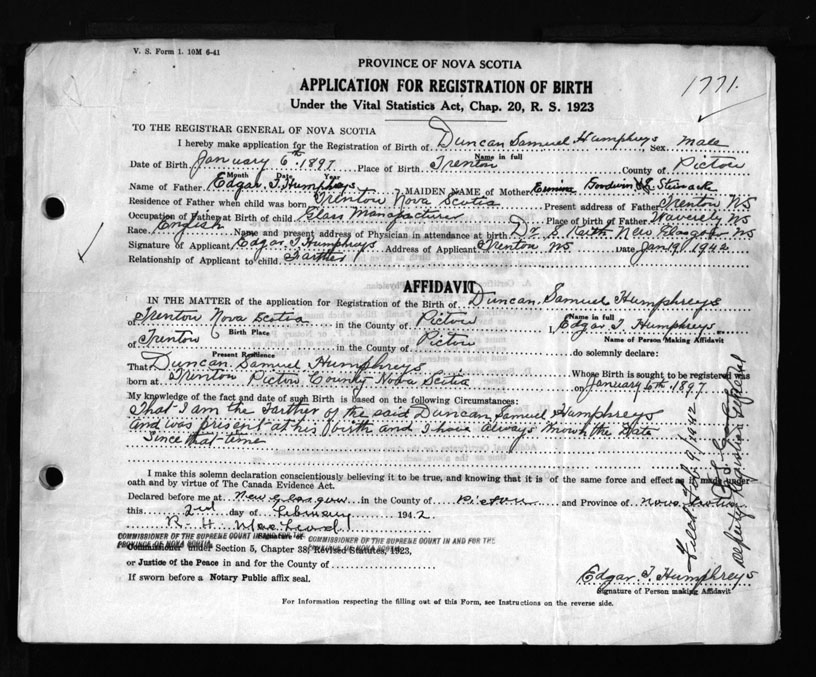 V. S. Form 1. 10M 6-41
PROVINCE OF NOVA SCOTIA
APPLICATION FOR REGISTRATION OF BIRTH
1771.
Under the Vital Statistics Act, Chap. 20, R. S. 1923
TO THE REGISTRAR GENERAL OF NOVA SCOTIA
I hereby make application for the Registration of Birth of Duncan Samuel Humphreys Sex male
Name in full
Date of Birth January 6th 1897 Place of Birth Trenton County of Pictou
Month Day Year
Name of Father Edgar T. Humphreys MAIDEN NAME of Mother Goodwin
Residence of Father when child was born Trenton Nova Scotia Present address of Father Trenton NS
Occupation of Father at Birth of child Glass Manafacturer Place of birth of Father Waverly NS
Race. English Name and present address of Physician in attendance at birth Dr Keith New Glasgow NS
Signature of Applicant Edgar T. Humphreys Address of Applicant Trenton NS Date Jan 19 1942
Relationship of Applicant to child Farther
AFFIDAVIT
IN THE MATTER of the application for Registration of the Birth of Duncan Samuel Humphreys
Name in full
of Trenton Nova Scotia in the County of Pictou Edgar T. Humphreys
Birth Place Name of Person Making Affidavit
of Trenton in the County of Pictou do solemnly declare:
Present Residence
That Duncan Samuel Humphreys Whose Birth is sought to be registered was
born at Trenton Pictou County Nova Scotia on January 6th 1897
My knowledge of the fact and date of such Birth is based on the following Circumstances:
That I am the Farther of the said Duncan Samuel Humphreys
and was present at his birth and I have always the Date
Since that time
I make this solemn declaration conscientiously believing it to be true, and knowing that it is of the same force and effect as if made under
oath and by virtue of The Canada Evidence Act.
Declared before me at New Glasgow in the County of Pictou and Province of Nova Scotia
this 2nd day of February 1942
R. H. MacLeod
COMMISSIONER OF THE SUPREME COURT IN AND FOR THE
PROVINCE OF NOVA SCOTIA
Commissioner under Section 5, Chapter 38, Revised Statutes, 1923,
or Justice of the Peace in and for the County of
If sworn before a Notary Public affix seal.
Edgar T. Humphreys
Signature of Person making Affidavit
For Information respecting the filling out of this Form, see Instructions on the reverse side.
Filed Feb. 9/1942
Deputy Registrar General